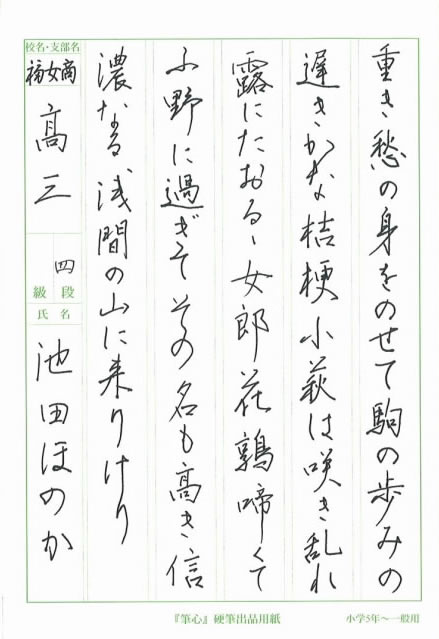 重き愁の身をのせて駒の歩みの
遅きかな桔梗小萩は咲き乱れ
露にたおるゝ女郎花鶉啼くて
ふ野に過ぎてその名も高き信
濃なる浅間の山に来りけり
校名・支部名
福女商
高三
四
段
級
氏名
池田ほのか
『筆心』硬筆出品用紙
小学5年〜一般用